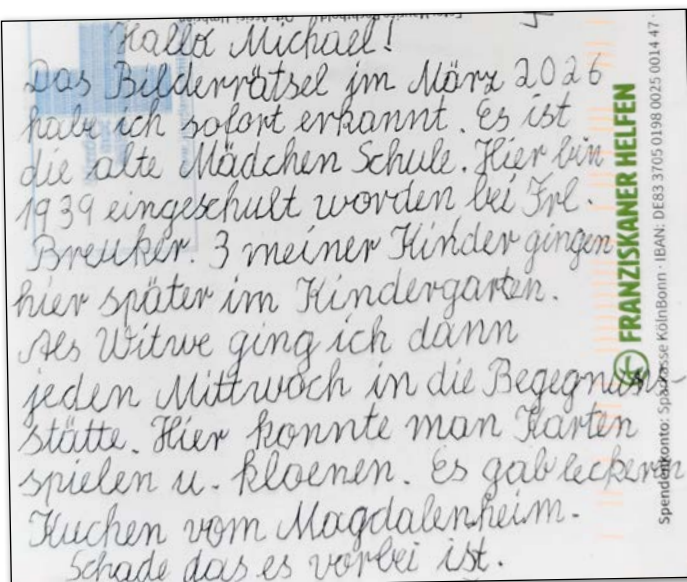 Hallo Michael!
Das Bilderrätsel im März 2026
habe ich sofort erkannt. Es ist
die alte Mädchen Schule. Hier bin
1939 eingeschult worden bei Frl.
Breuker. 3 meiner Kinder gingen
hier später im Kindergarten.
Als Witwe ging ich dann
jeden Mittwoch in die Begegnuns-
stätte. Hier konnte man Karten
spielen u. kloenen. Es gab leckern
Kuchen vom Magdalenheim.
Schade das es vorbei ist.
FRANZISKANER HELFEN
Spendenkonto: Sparkasse KölnBonn · IBAN: DE83 3705 0198 0025 0014 47 ·